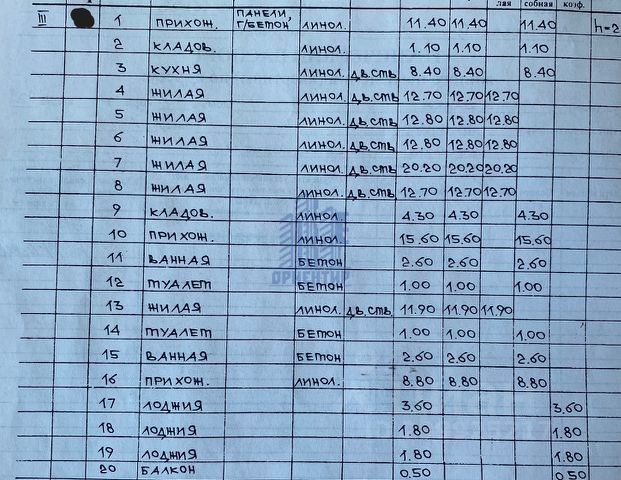 лая собная коэф.
III 1 ПРИХОЖ. ПАНЕЛИ, Г/БЕТОН ЛИНОЛ. 11.40 11.40 11.40 h=2
2 КЛАДОВ. ЛИНОЛ. 1.10 1.10 1.10
3 КУХНЯ ЛИНОЛ. ДВ.СТВ 8.40 8.40 8.40
4 ЖИЛАЯ ЛИНОЛ. ДВ.СТВ 12.70 12.70 12.70
5 ЖИЛАЯ ЛИНОЛ. ДВ.СТВ 12.80 12.80 12.80
6 ЖИЛАЯ ЛИНОЛ. ДВ.СТВ 12.80 12.80 12.80
7 ЖИЛАЯ ЛИНОЛ. ДВ.СТВ 20.20 20.20 20.20
8 ЖИЛАЯ ЛИНОЛ. ДВ.СТВ 12.70 12.70 12.70
9 КЛАДОВ. ЛИНОЛ. 4.30 4.30 4.30
10 ПРИХОЖ. ЛИНОЛ. 15.60 15.60 15.60
11 ВАННАЯ БЕТОН 2.60 2.60 2.60
ОРИЕНТИР
12 ТУАЛЕТ БЕТОН 1.00 1.00 1.00
13 ЖИЛАЯ ЛИНОЛ. ДВ.СТВ 11.90 11.90 11.90
14 ТУАЛЕТ БЕТОН 1.00 1.00 1.00
15 ВАННАЯ БЕТОН 2.60 2.60 2.60
16 ПРИХОЖ. ЛИНОЛ. 8.80 8.80 8.80
17 ЛОДЖИЯ 3.60 3.60
18 ЛОДЖИЯ 1.80 1.80
19 ЛОДЖИЯ 1.80 1.80
20 БАЛКОН 0.50 0.50